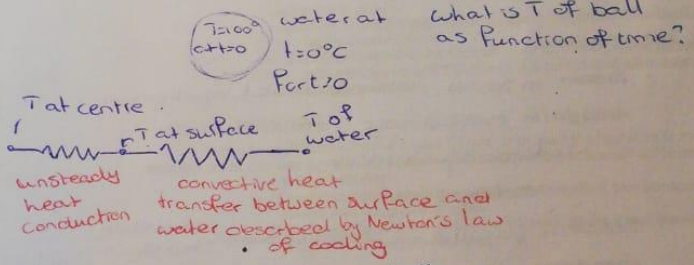 T=100°
at t=0
water at
t=0°C
for t>0
what is T of ball
as function of time?
T at centre.
T at surface
T of
water
unsteady
heat
conduction
convective heat
transfer between surface and
water described by Newton's law
of cooling